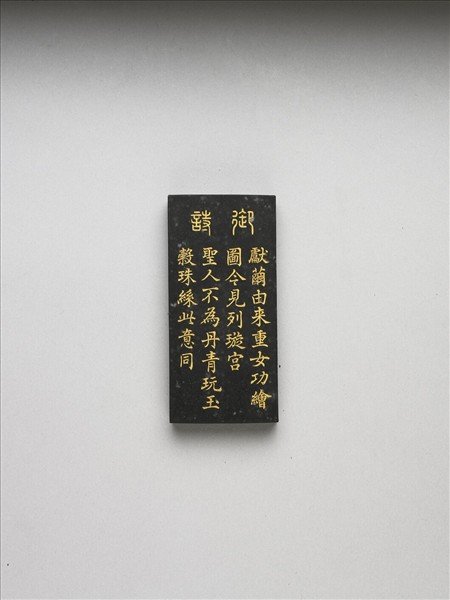 御詩
獻繭由来重女功繪
圖今見列璇宫
聖人不為丹青玩玉
縠珠絲此意同